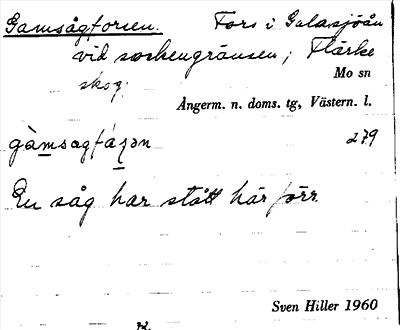 Gamsågforsen. Fors i Galasjöån
vid sockengränsen; Flärke
skog.
Mo sn
Ångerm. n. doms. tg, Västern. l.
279
En såg har stått här förr.
Sven Hiller 1960